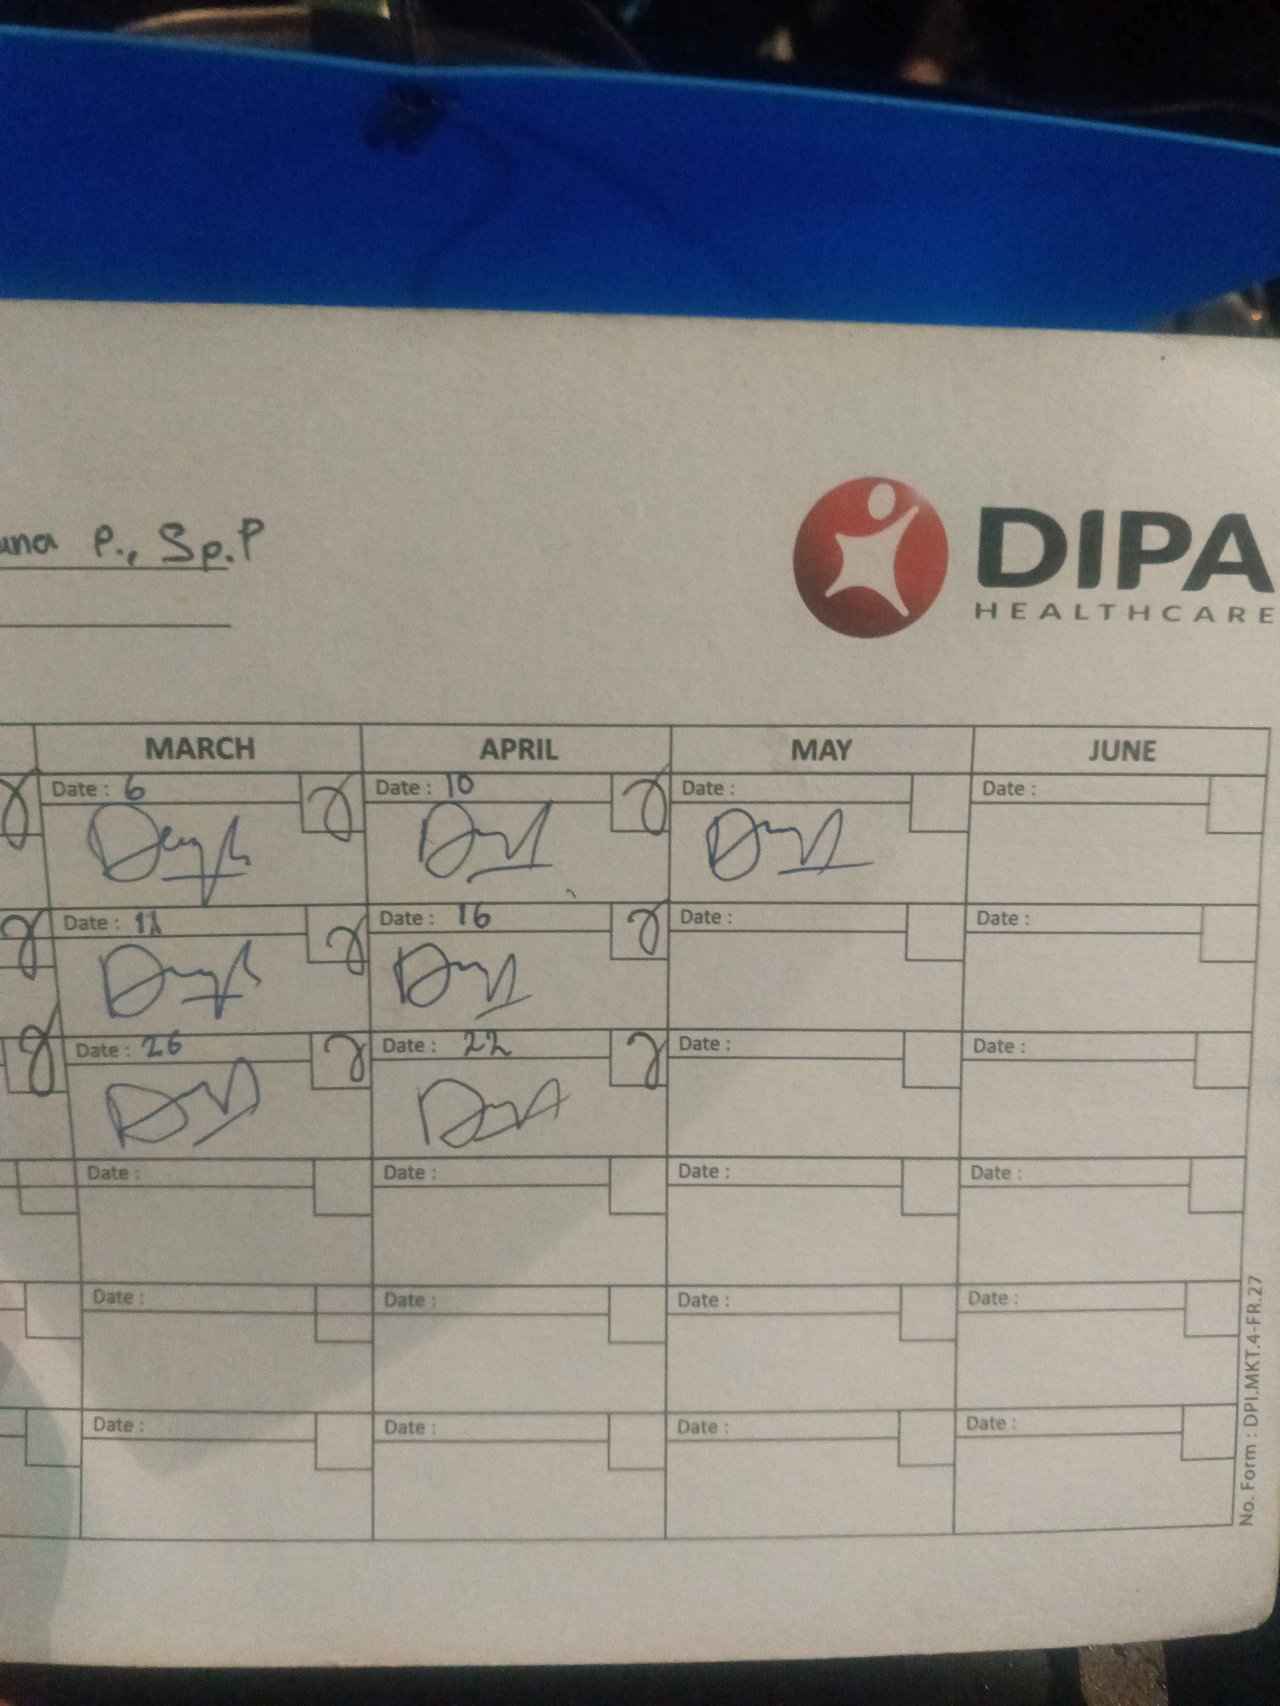 P., Sp.P
DIPA
HEALTHCARE
MARCH APRIL MAY JUNE
Date : 6 Date : 10 Date : Date :
Date : Date : 16 Date : Date :
Date : 26 Date : 22 Date : Date :
Date : Date : Date : Date :
Date : Date : Date : Date :
Date : Date : Date : Date :
No. Form : DPI.MKT.4-FR.27